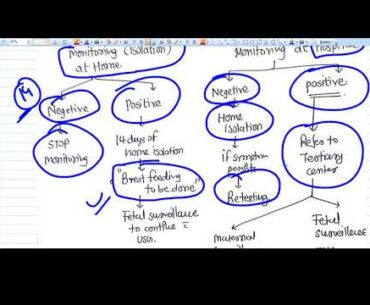 Monitoring (Isolation)
at Home
Monitoring at Hospital
14
Negetive
Positive
Negetive
positive
STOP
monitoring
14 days of
home isolation
Home
Isolation
"Brest feeding
to be done"
if symptom
Retesting
Refer to
Tertiary
center
Fetal surveillance
to continue c̄
USG.
maternal
Fetal
surveillance